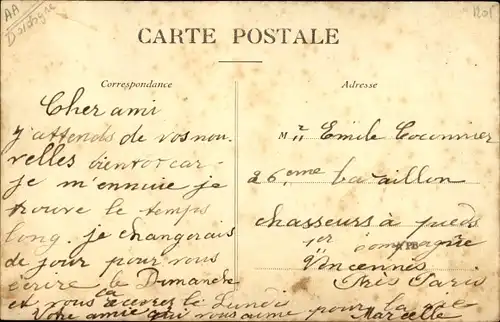 AA
Dordogne
1205
CARTE POSTALE
Correspondance
Adresse
Cher ami
j'attends de vos nou-
velles bientot car
je m'ennuie je
trouve le temps
long. je changerais
de jour pour vous
écrire le Dimanche
et vous la recevrez le Lundi
Votre amie qui vous aime pour la vie
Marcelle
Mr Emile Coconnier
26 eme bataillon
chasseurs à pieds
1er compagnie
Vincennes
Près Paris